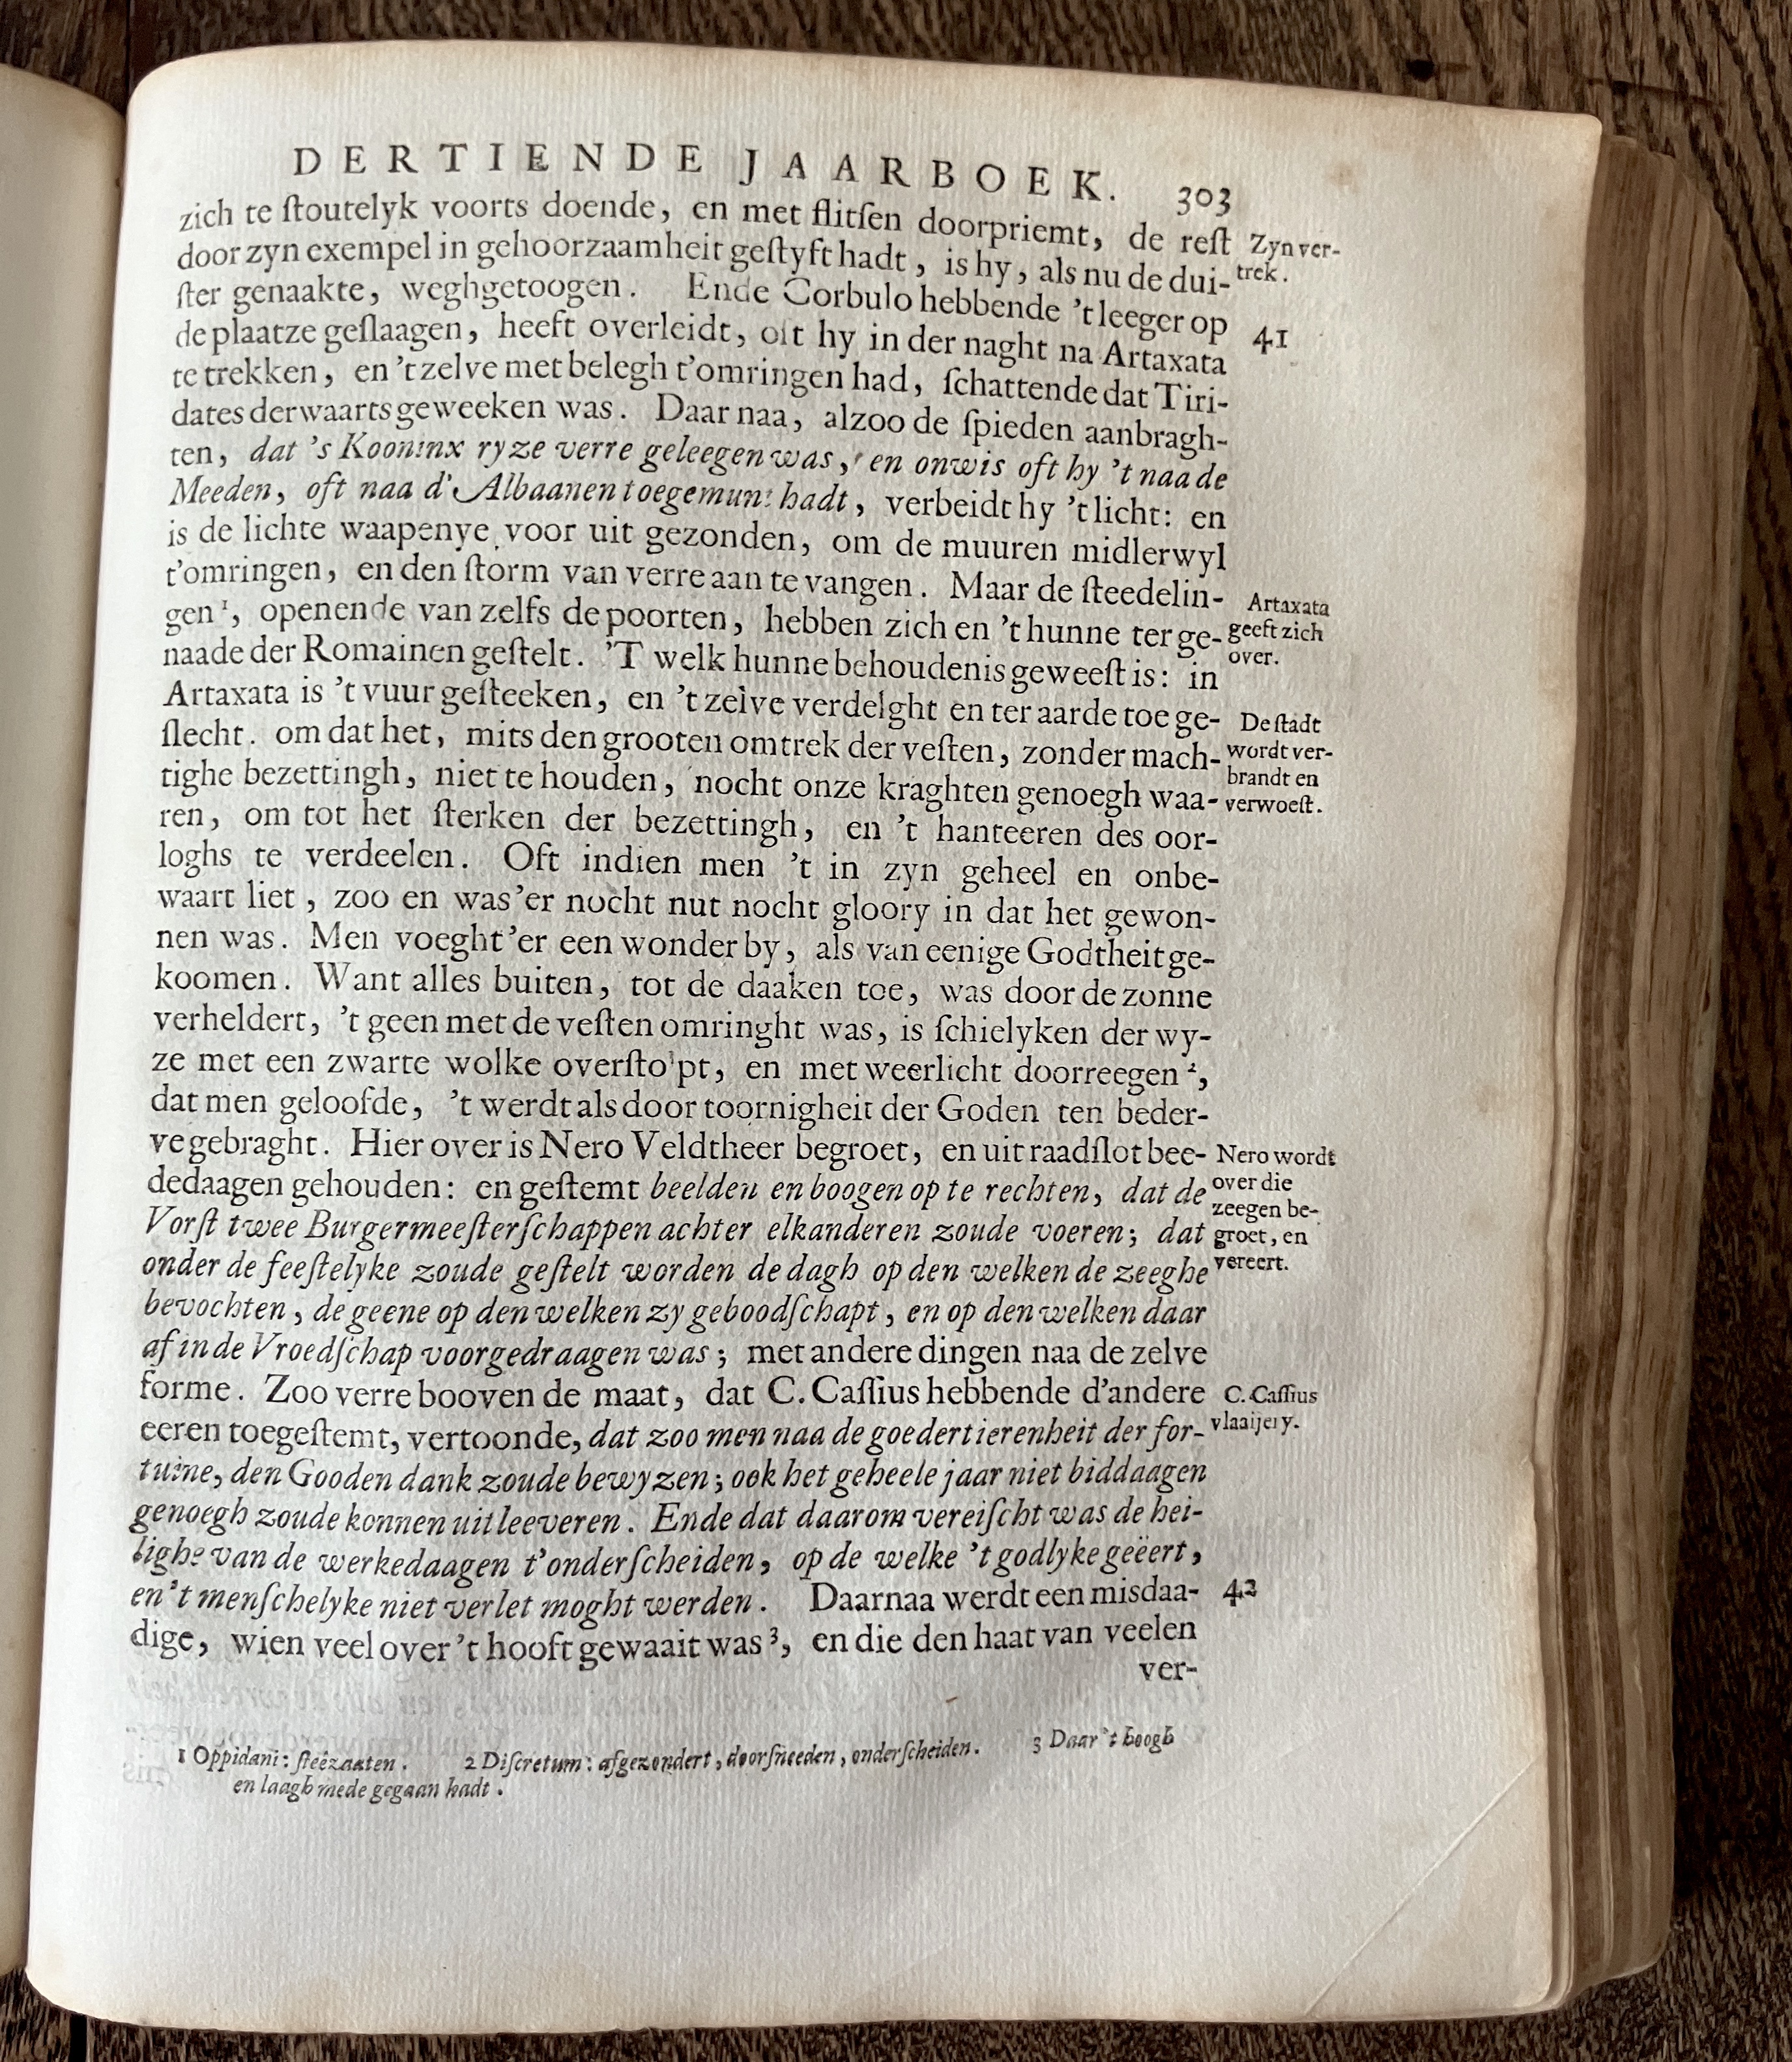 DERTIENDE JAARBOEK. 303
zich te ſtoutelyk voorts doende, en met flitſen doorpriemt, de reſt
door zyn exempel in gehoorzaamheit geſtyft hadt, is hy, als nu de dui-
ſter genaakte, weghgetoogen. Ende Corbulo hebbende 't leeger op
de plaatze geſlaagen, heeft overleidt, oft hy in der naght na Artaxata
te trekken, en 't zelve met belegh t'omringen had, ſchattende dat Tiri-
dates derwaarts geweeken was. Daar naa, alzoo de ſpieden aanbragh-
ten, dat 's Kooninx ryze verre geleegen was, en onwis oft hy 't naa de
Meeden, oft naa d' Albaanen toegemunt hadt, verbeidt hy 't licht: en
is de lichte waapenye voor uit gezonden, om de muuren midlerwyl
t'omringen, en den ſtorm van verre aan te vangen. Maar de ſteedelin-
gen 1, openende van zelfs de poorten, hebben zich en 't hunne ter ge-
naade der Romainen geſtelt. 'T welk hunne behoudenis geweeſt is: in
Artaxata is 't vuur geſteeken, en 't zelve verdelght en ter aarde toe ge-
ſlecht. om dat het, mits den grooten omtrek der veſten, zonder mach-
tighe bezettingh, niet te houden, nocht onze kraghten genoegh waa-
ren, om tot het ſterken der bezettingh, en 't hanteeren des oor-
loghs te verdeelen. Oft indien men 't in zyn geheel en onbe-
waart liet, zoo en was'er nocht nut nocht gloory in dat het gewon-
nen was. Men voeght'er een wonder by, als van eenige Godtheit ge-
koomen. Want alles buiten, tot de daaken toe, was door de zonne
verheldert, 't geen met de veſten omringht was, is ſchielyken der wy-
ze met een zwarte wolke overſtolpt, en met weerlicht doorreegen 2,
dat men geloofde, 't werdt als door toornigheit der Goden ten beder-
ve gebraght. Hier over is Nero Veldtheer begroet, en uit raadſlot bee-
dedaagen gehouden: en geſtemt beelden en boogen op te rechten, dat de
Vorſt twee Burgermeeſterſchappen achter elkanderen zoude voeren; dat
onder de feeſtelyke zoude geſtelt worden de dagh op den welken de zeeghe
bevochten, de geene op den welken zy geboodſchapt, en op den welken daar
af in de Vroedſchap voorgedraagen was; met andere dingen naa de zelve
forme. Zoo verre booven de maat, dat C. Caſſius hebbende d'andere
eeren toegeſtemt, vertoonde, dat zoo men naa de goedertierenheit der for-
tuine, den Gooden dank zoude bewyzen; ook het geheele jaar niet biddaagen
genoegh zoude konnen uitleeveren. Ende dat daarom vereiſcht was de hei-
lighe van de werkedaagen t'onderſcheiden, op de welke 't godlyke geëert,
en 't menſchelyke niet verlet moght werden. Daarnaa werdt een misdaa-
dige, wien veel over 't hooft gewaait was 3, en die den haat van veelen
ver-
Zyn ver-
trek.
41
Artaxata
geeft zich
over.
De ſtadt
wordt ver-
brandt en
verwoeſt.
Nero wordt
over die
zeegen be-
groet, en
vereert.
C. Caſſius
vlaaijery.
42
1 Oppidani: ſteêzaaten. 2 Diſcretum: afgezondert, doorſneeden, onderſcheiden. 3 Daar 't hoogh
en laagh mede gegaan hadt.